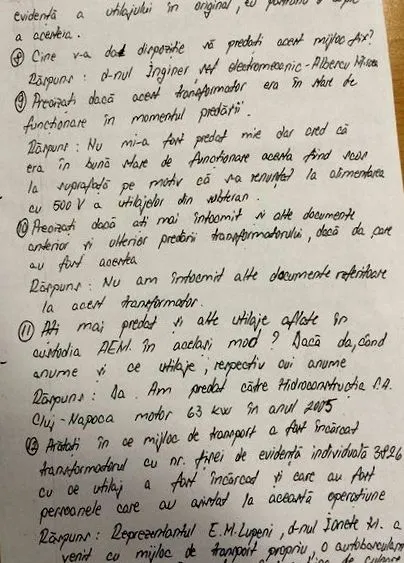 evidență a utilajului în original, eu păstrând o copie
a acesteia.
⑧ Cine v-a dat dispoziție să predați acest mijloc fix?
Răspuns: d-nul Inginer șef electromecanic - Albescu Mircea
⑨ Precizați dacă acest transformator era în stare de
funcționare în momentul predării.
Răspuns: Nu mi-a fost predat mie dar cred că
era în bună stare de funcționare acesta fiind scos
la suprafață pe motiv că s-a renunțat la alimentarea
cu 500 V a utilajelor din subteran.
⑩ Precizați dacă ați mai întocmit și alte documente
anterior și ulterior predării transformatorului, dacă da care
au fost acestea
Răspuns: Nu am întocmit alte documente referitoare
la acest transformator.
⑪ Ați mai predat și alte utilaje aflate în
custodia AEM. în același mod? Dacă da, când
anume și ce utilaje, respectiv cui anume
Răspuns: Da. Am predat către Hidroconstrucția S.A.
Cluj-Napoca motor 63 kw în anul 2005
⑫ Arătați în ce mijloc de transport a fost încărcat
transformatorul cu nr. fișei de evidență individuală 3826
cu ce utilaj a fost încărcat și care au fost
persoanele care au asistat la această operațiune
Răspuns: Reprezentantul E.M. Lupeni, d-nul Ionete M. a
venit cu mijloc de transport propriu, o autobasculantă
de culoare